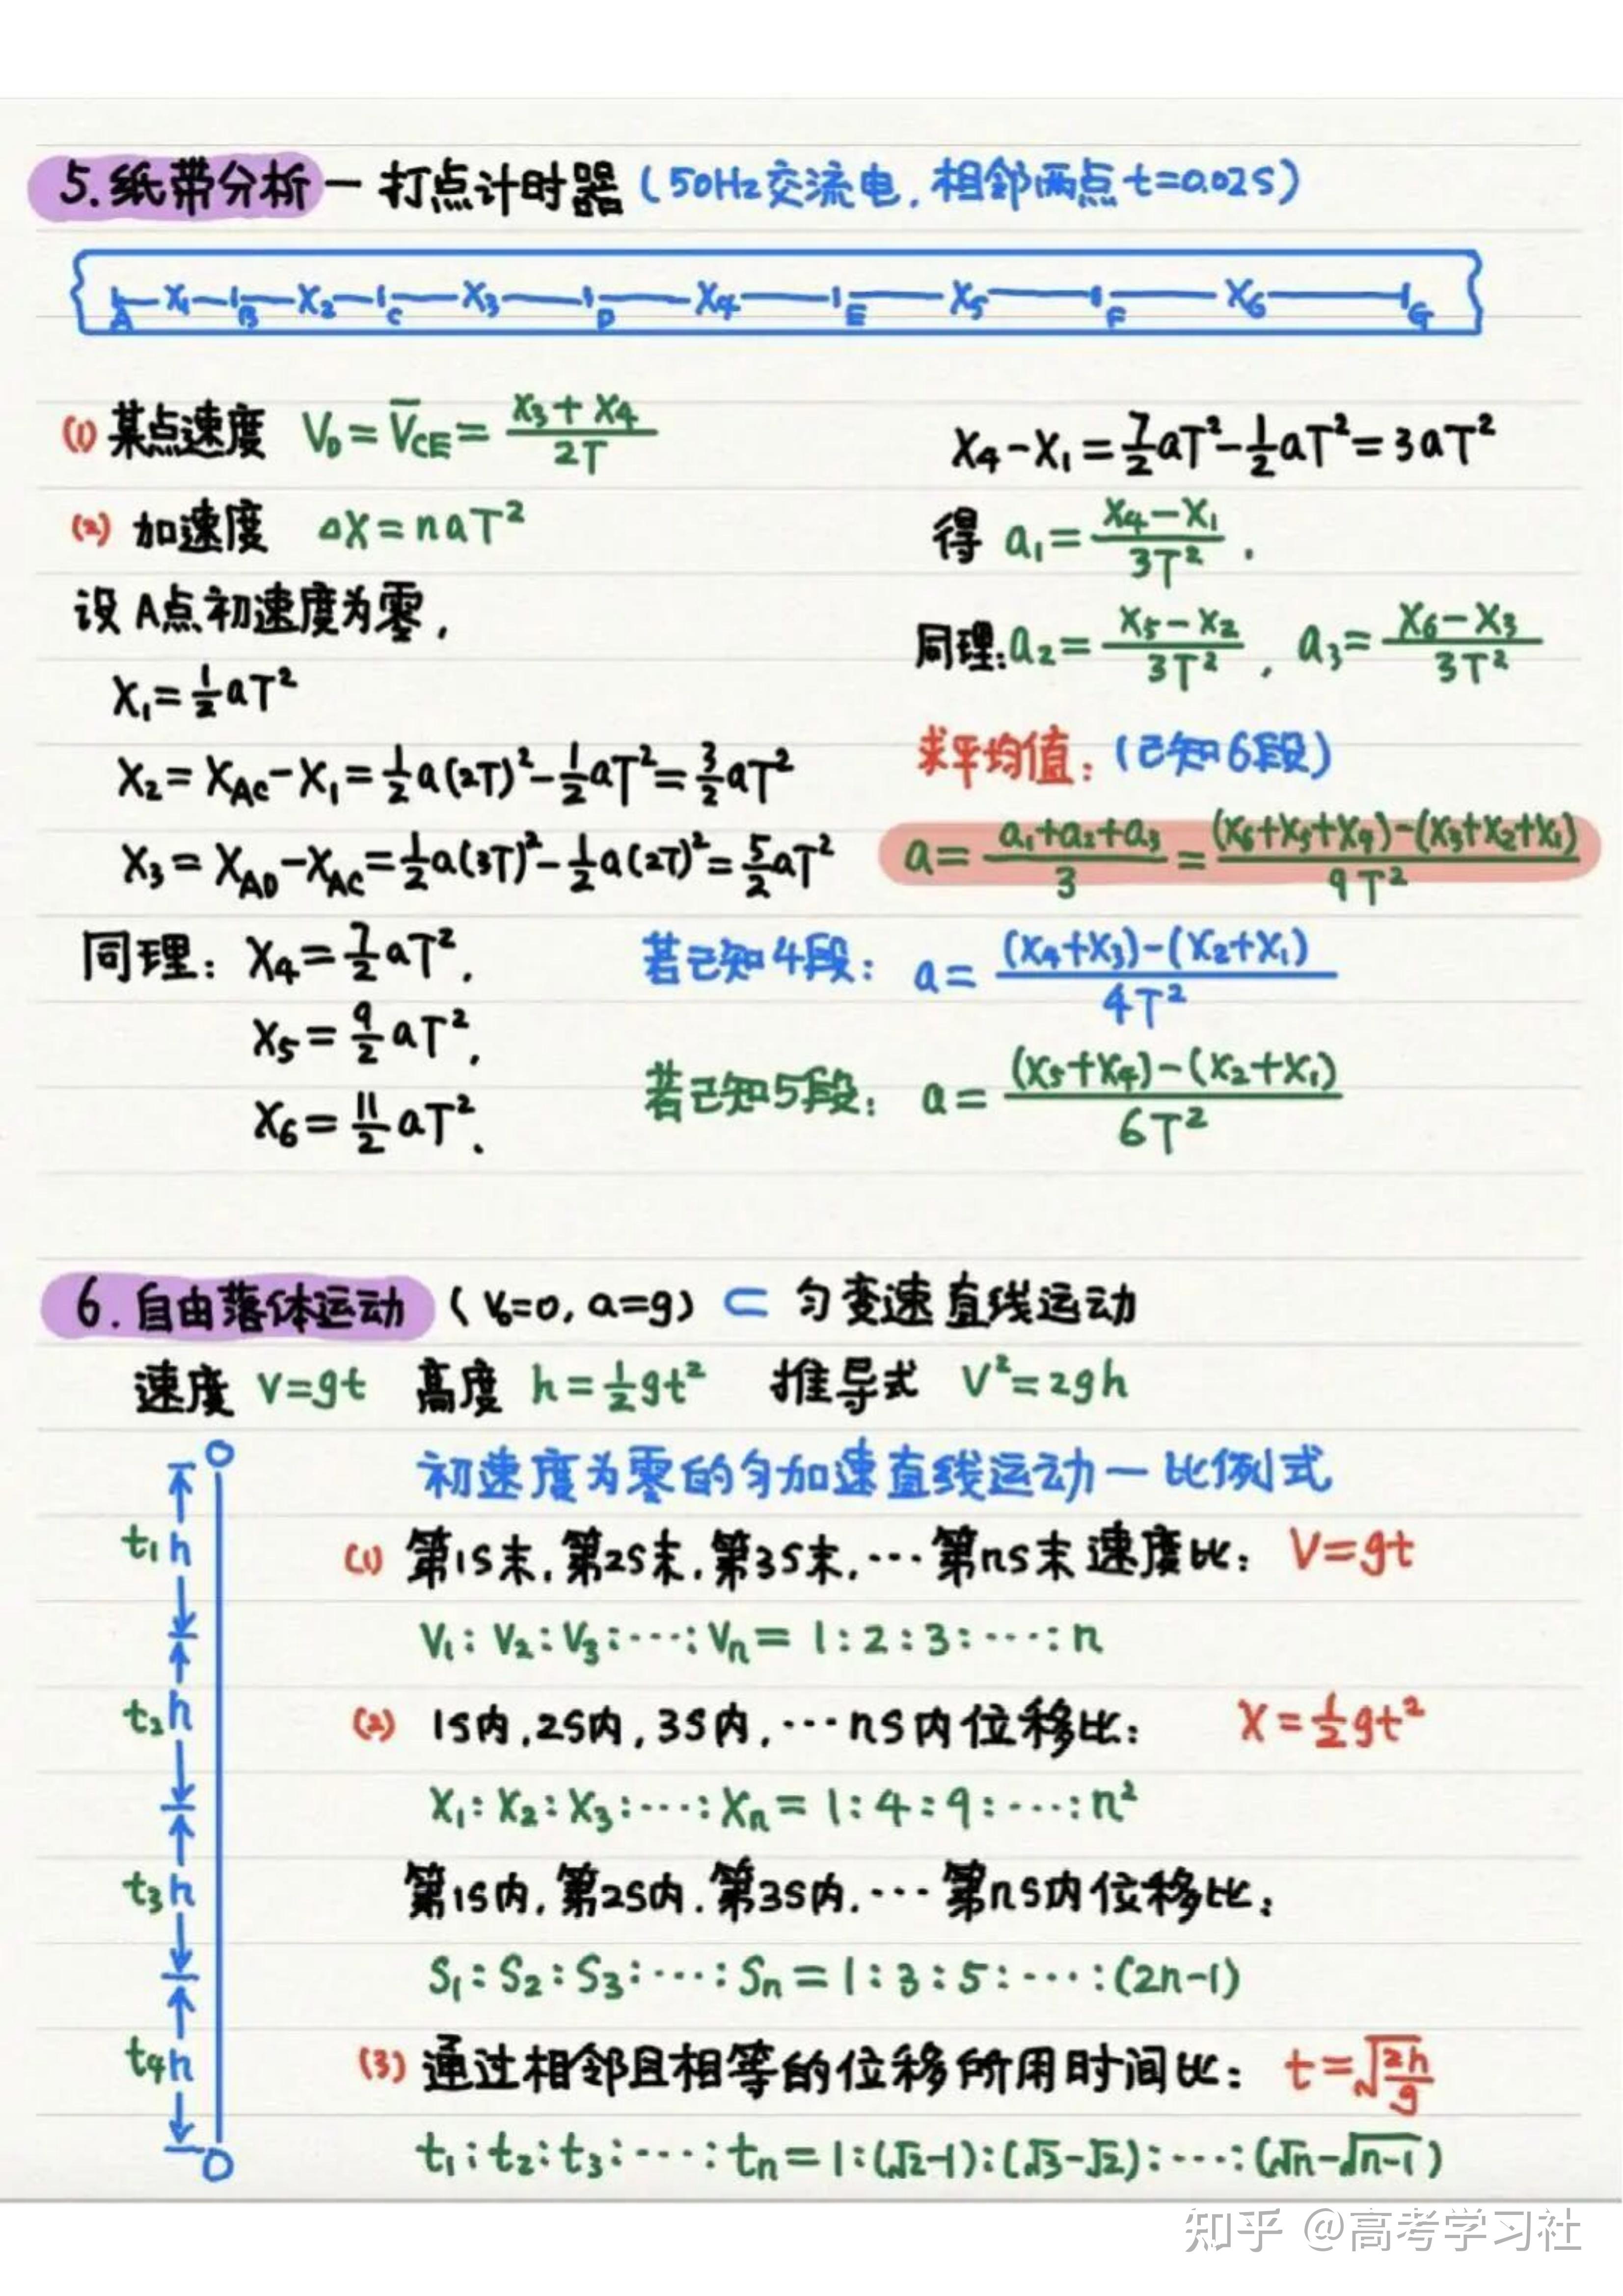 5.纸带分析—打点计时器(50Hz交流电,相邻两点t=0.02S)
A X₁ B X₂ C X₃ D X₄ E X₅ F X₆ G
(1) 某点速度 V_D = V̅_CE = (X₃+X₄)/2T
(2) 加速度 △X=naT²
设A点初速度为零,
X₁=½aT²
X₂=X_AC-X₁=½a(2T)²-½aT²=3/2aT²
X₃=X_AD-X_AC=½a(3T)²-½a(2T)²=5/2aT²
同理: X₄=7/2aT².
X₅=9/2aT².
X₆=11/2aT².
X₄-X₁=7/2aT²-½aT²=3aT²
得 a₁=(X₄-X₁)/3T².
同理:a₂=(X₅-X₂)/3T², a₃=(X₆-X₃)/3T²
求平均值:(已知6段)
a=(a₁+a₂+a₃)/3=((X₆+X₅+X₄)-(X₃+X₂+X₁))/9T²
若已知4段: a=((X₄+X₃)-(X₂+X₁))/4T²
若已知5段: a=((X₅+X₄)-(X₂+X₁))/6T²
6.自由落体运动(V₀=0,a=g)⊂ 匀变速直线运动
速度 V=gt 高度 h=½gt² 推导式 V²=2gh
t₁ h
t₂ h
t₃ h
t₄ h
初速度为零的匀加速直线运动—比例式
(1) 第1S末,第2S末,第3S末,…第nS末速度比: V=gt
V₁:V₂:V₃:…:Vn=1:2:3:…:n
(2) 1S内,2S内,3S内,…nS内位移比: X=½gt²
X₁:X₂:X₃:…:Xn=1:4:9:…:n²
第1S内,第2S内,第3S内,…第nS内位移比:
S₁:S₂:S₃:…:Sn=1:3:5:…:(2n-1)
(3) 通过相邻且相等的位移所用时间比: t=√(2h/g)
t₁:t₂:t₃:…:tn=1:(√2-1):(√3-√2):…:(√n-√(n-1))
知乎 @高考学习社